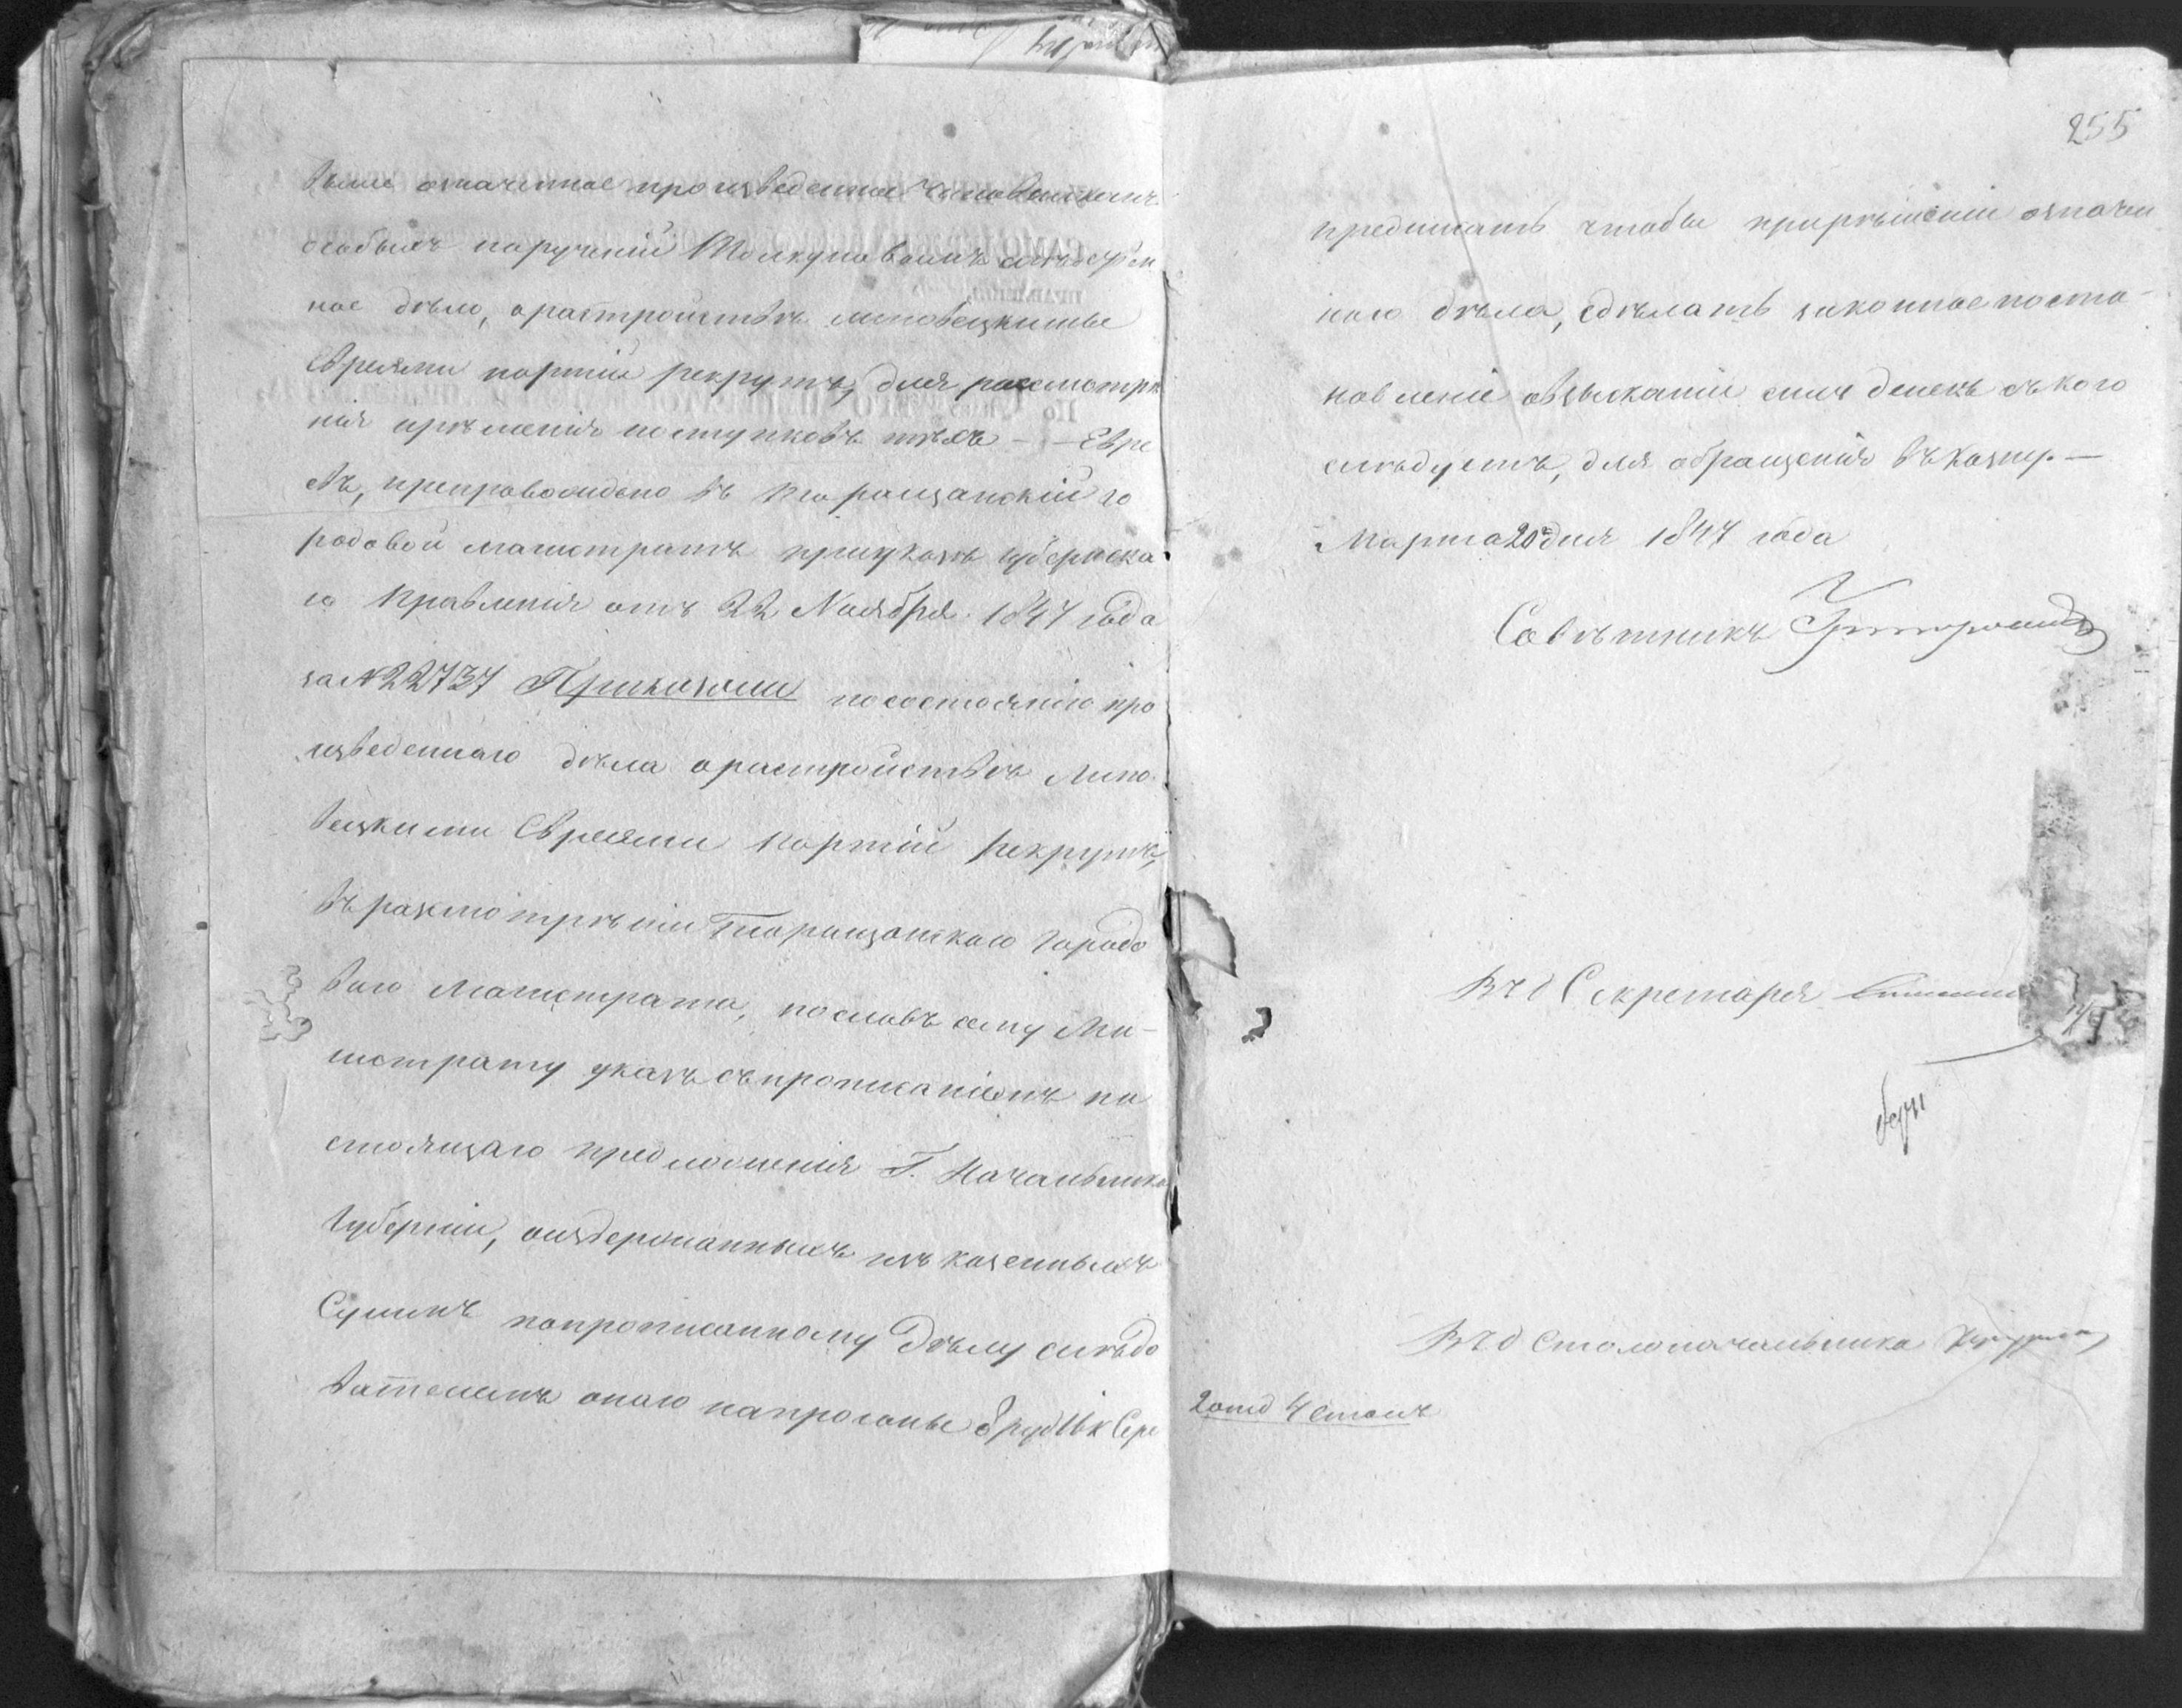 выше означенное произведенное Чиновникомъ
особыхъ порученій Толкуновымъ слѣдствен
ное дѣло, орастройствѣ липовецкими
Евреями партіи рекрутъ, для разсмотрѣ
нія
поступковъ тѣхъ - - Евре
евъ, препровождено въ Таращанскій го
родовой магистратъ приуказѣ Губернска
го Правленія отъ 22 Ноября 1847 года
за № 22737 Приказали посостоянію про
изведеннаго дѣла орастройствѣ Липо
вецкими Евреями партіи рекрутъ,
въразсмотрѣніи Таращанскаго Городо
ваго Магистрата, пославъ сему Ма-
гистрату указъ съпрописаніемъ на
стоящаго предложенія Г. Начальника
Губерніи, оиздержанныхъ изъ казенныхъ
Суммъ попрописанному Дѣлу слѣдо
вателемъ онаго напрогоны 8 руб 16 к Сере
255
предписать чтобы прирѣшеніи означен
наго дѣла, сдѣлать законное поста-
новленіе овзысканіи сихъ денегъ съкого
слѣдуетъ, для обращенія въ казну. —
Марта 20 дня 1847 года
Совѣтникъ
ВчД Секретаря
ВчД Столоначальника
2 отд 4 столъ